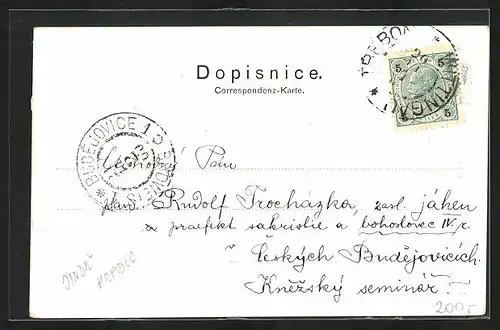 Dopisnice.
Correspondenz-Karte.
TŘEBOŇ
WITTINGAU
5 5
5
BUDĚJOVICE 1
BUDWEIS 1
Ctihodný Pán
pan Rudolf Procházka, zasl. jáhen
a praefekt sakristie a bohoslovec IV. r.
v Českých Budějovicích.
Kněžský seminář.
JINDŘ
HRADEC
200,-